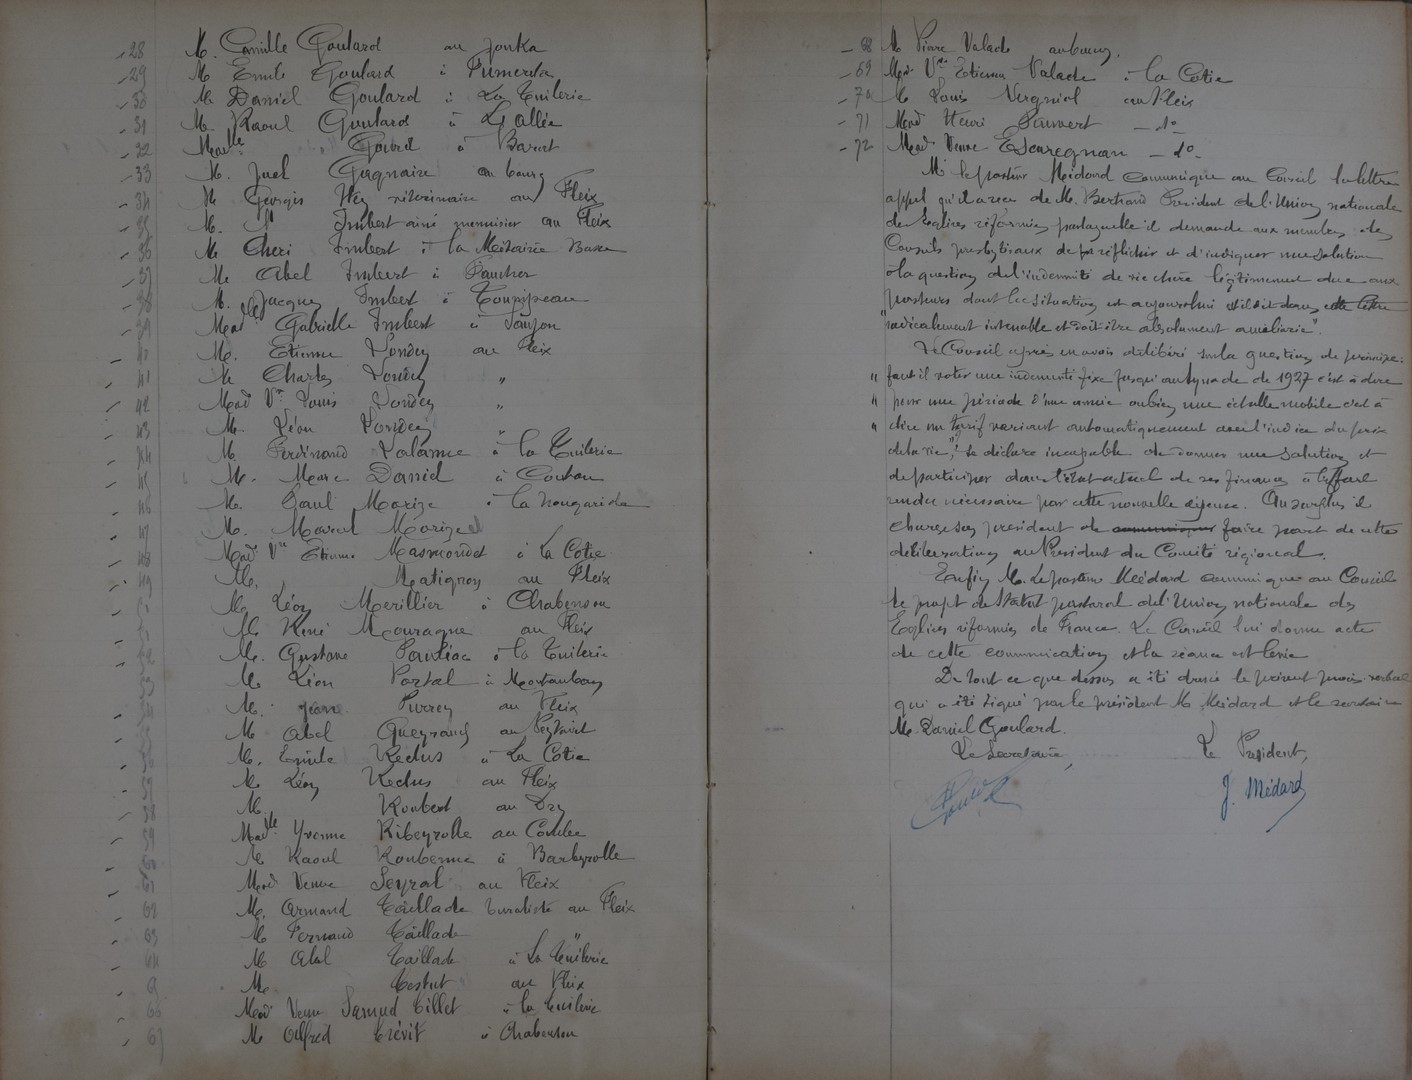 28 M. Camille Goulard au Jonka
29 M. Emile Goulard à
30 M. Daniel Goulard à La Tuilerie
31 M. Raoul Goulard à L'Allée
32 Madlle Gourd à Barat
33 M. Joel Gagnaire au bourg
34 M. Georges Hey vétérinaire au Fleix
35 M. Imbert ainé menuisier au Fleix
36 M. Cheri Imbert à la Métairie Basse
37 M. Abel Imbert à Faucher
38 M. Jacques Imbert à Toupipeau
39 Madelle Gabrielle Imbert à Toujon
40 M. Etienne au Fleix
41 M. Charles "
42 Mad Ve Louis "
43 M. Léon "
44 M. Ferdinand Lalanne à la Tuilerie
45 M. Marc Daniel à Coutou
46 M. Paul Marize à la Nougarède
47 M. Marcel Marize
48 Made Ve Etienne Masmondet à La Cotie
49 M. Matignon au Fleix
M. Léon Merillier à Chabenson
M. René Mouragne au Fleix
M. Gustave Pauliac à la Tuilerie
M. Léon Portal à Montauban
M. Jean Purrey au Fleix
M. Abel Queyrand au
M. Emile Reclus à La Cotie
M. Léon Reclus au Fleix
58 M. Roubert au
59 Madlle Yvonne Ribeyrolle au Combe
M. Raoul Roubenne à Barbyrolle
61 Mad Veuve Seyral au Fleix
62 M. Armand Taillade buraliste au Fleix
63 M. Fernand Taillade "
64 M. Abel Taillade à La Tuilerie
M. Testut au Fleix
66 Mad Veuve Samuel Tillet à la Tuilerie
67 M. Alfred Trévit à Chabenson
68 M. Pierre Valade au bourg.
69 Mad Vve Etienne Valade à la Cotie
70 M. Louis Vergniol au Fleix
71 Mad Henri Pauvert - do -
72 Mad Veuve Escuregnan - do -
M. le pasteur Médard communique au Conseil la lettre
appel qu'il a reçu de M. Bertrand Président de l'Union nationale
des Eglises réformées par laquelle il demande aux membres des
Conseils presbytéraux de réfléchir et d'indiquer une solution
à la question de l'indemnité de vie chère légitimement due aux
pasteurs dont la situation est aujourd'hui dit-il dans cette lettre
"radicalement intenable et doit être absolument améliorée".
Le Conseil après en avoir délibéré sur la question de principe:
" faut il voter une indemnité fixe jusqu'au synode de 1927 c'est à dire
" pour une période d'une année ou bien une échelle mobile c'est à
" dire un tarif variant automatiquement avec l'indice du prix
de la vie", se déclare incapable de donner une solution et
de participer dans l'état actuel de ses finances à l'effort
rendu nécessaire par cette nouvelle dépense. Au surplus il
charge son président de communiquer faire part de cette
délibération au Président du Comité régional.
Enfin M. Le pasteur Médard communique au Conseil
le projet de Statut pastoral de l'Union nationale des
Eglises réformées de France. Le Conseil lui donne acte
de cette communication et la séance est levée
De tout ce que dessus a été dressé le présent procès verbal
qui a été signé par le président M. Médard et le secrétaire
M. Daniel Goulard.
Le Secrétaire, Le Président,
J. Médard